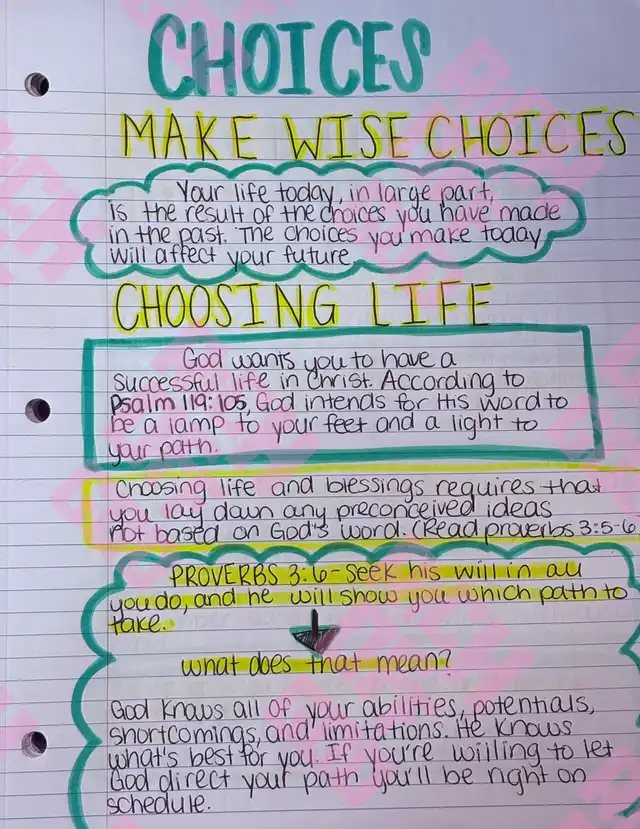 CHOICES
MAKE WISE CHOICES
Your life today, in large part,
is the result of the choices you have made
in the past. The choices you make today
will affect your future
CHOOSING LIFE
God wants you to have a
successful life in Christ. According to
Psalm 119:105, God intends for His word to
be a lamp to your feet and a light to
your path.
Choosing life and blessings requires that
you lay down any preconceived ideas
not based on God's word. (Read proverbs 3:5-6
PROVERBS 3:6-Seek his will in all
you do, and he will show you which path to
take.
what does that mean?
God knows all of your abilities, potentials,
shortcomings, and limitations. He knows
what's best for you. If you're willing to let
God direct your path you'll be right on
schedule.